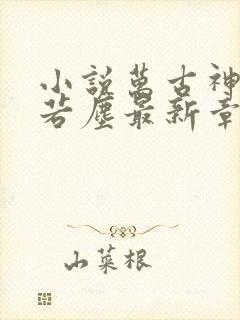 小說萬古神
若塵最新章
山菜根